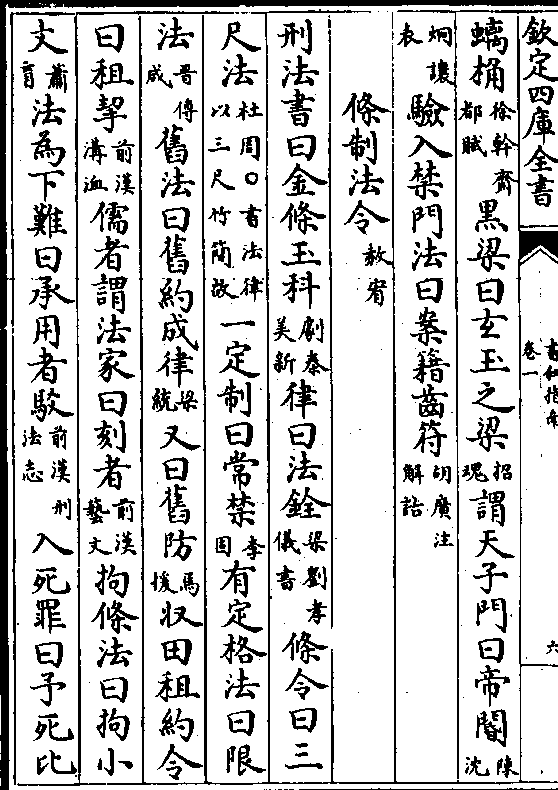 欽定四庫全書
書敘指南
卷一
六
螭桷徐幹齊都賦黒梁曰玄玉之梁招魂謂天子門曰帝閽陳沈
炯讓表驗入禁門法曰案籍齒符胡廣注解詁
條制法令赦宥
刑法書曰金條玉科劇秦美新律曰法銓梁劉孝儀書條令曰三
尺法杜周○書法律以三尺竹簡故一定制曰常禁李固有定格法曰限
法晉傅成舊法曰舊約成律梁統又曰舊防馬援収田租約令
曰租挈前漢溝洫儒者謂法家曰刻者前漢藝文拘條法曰拘小
文蕭育法為下難曰承用者駮前漢刑法志入死罪曰予死比